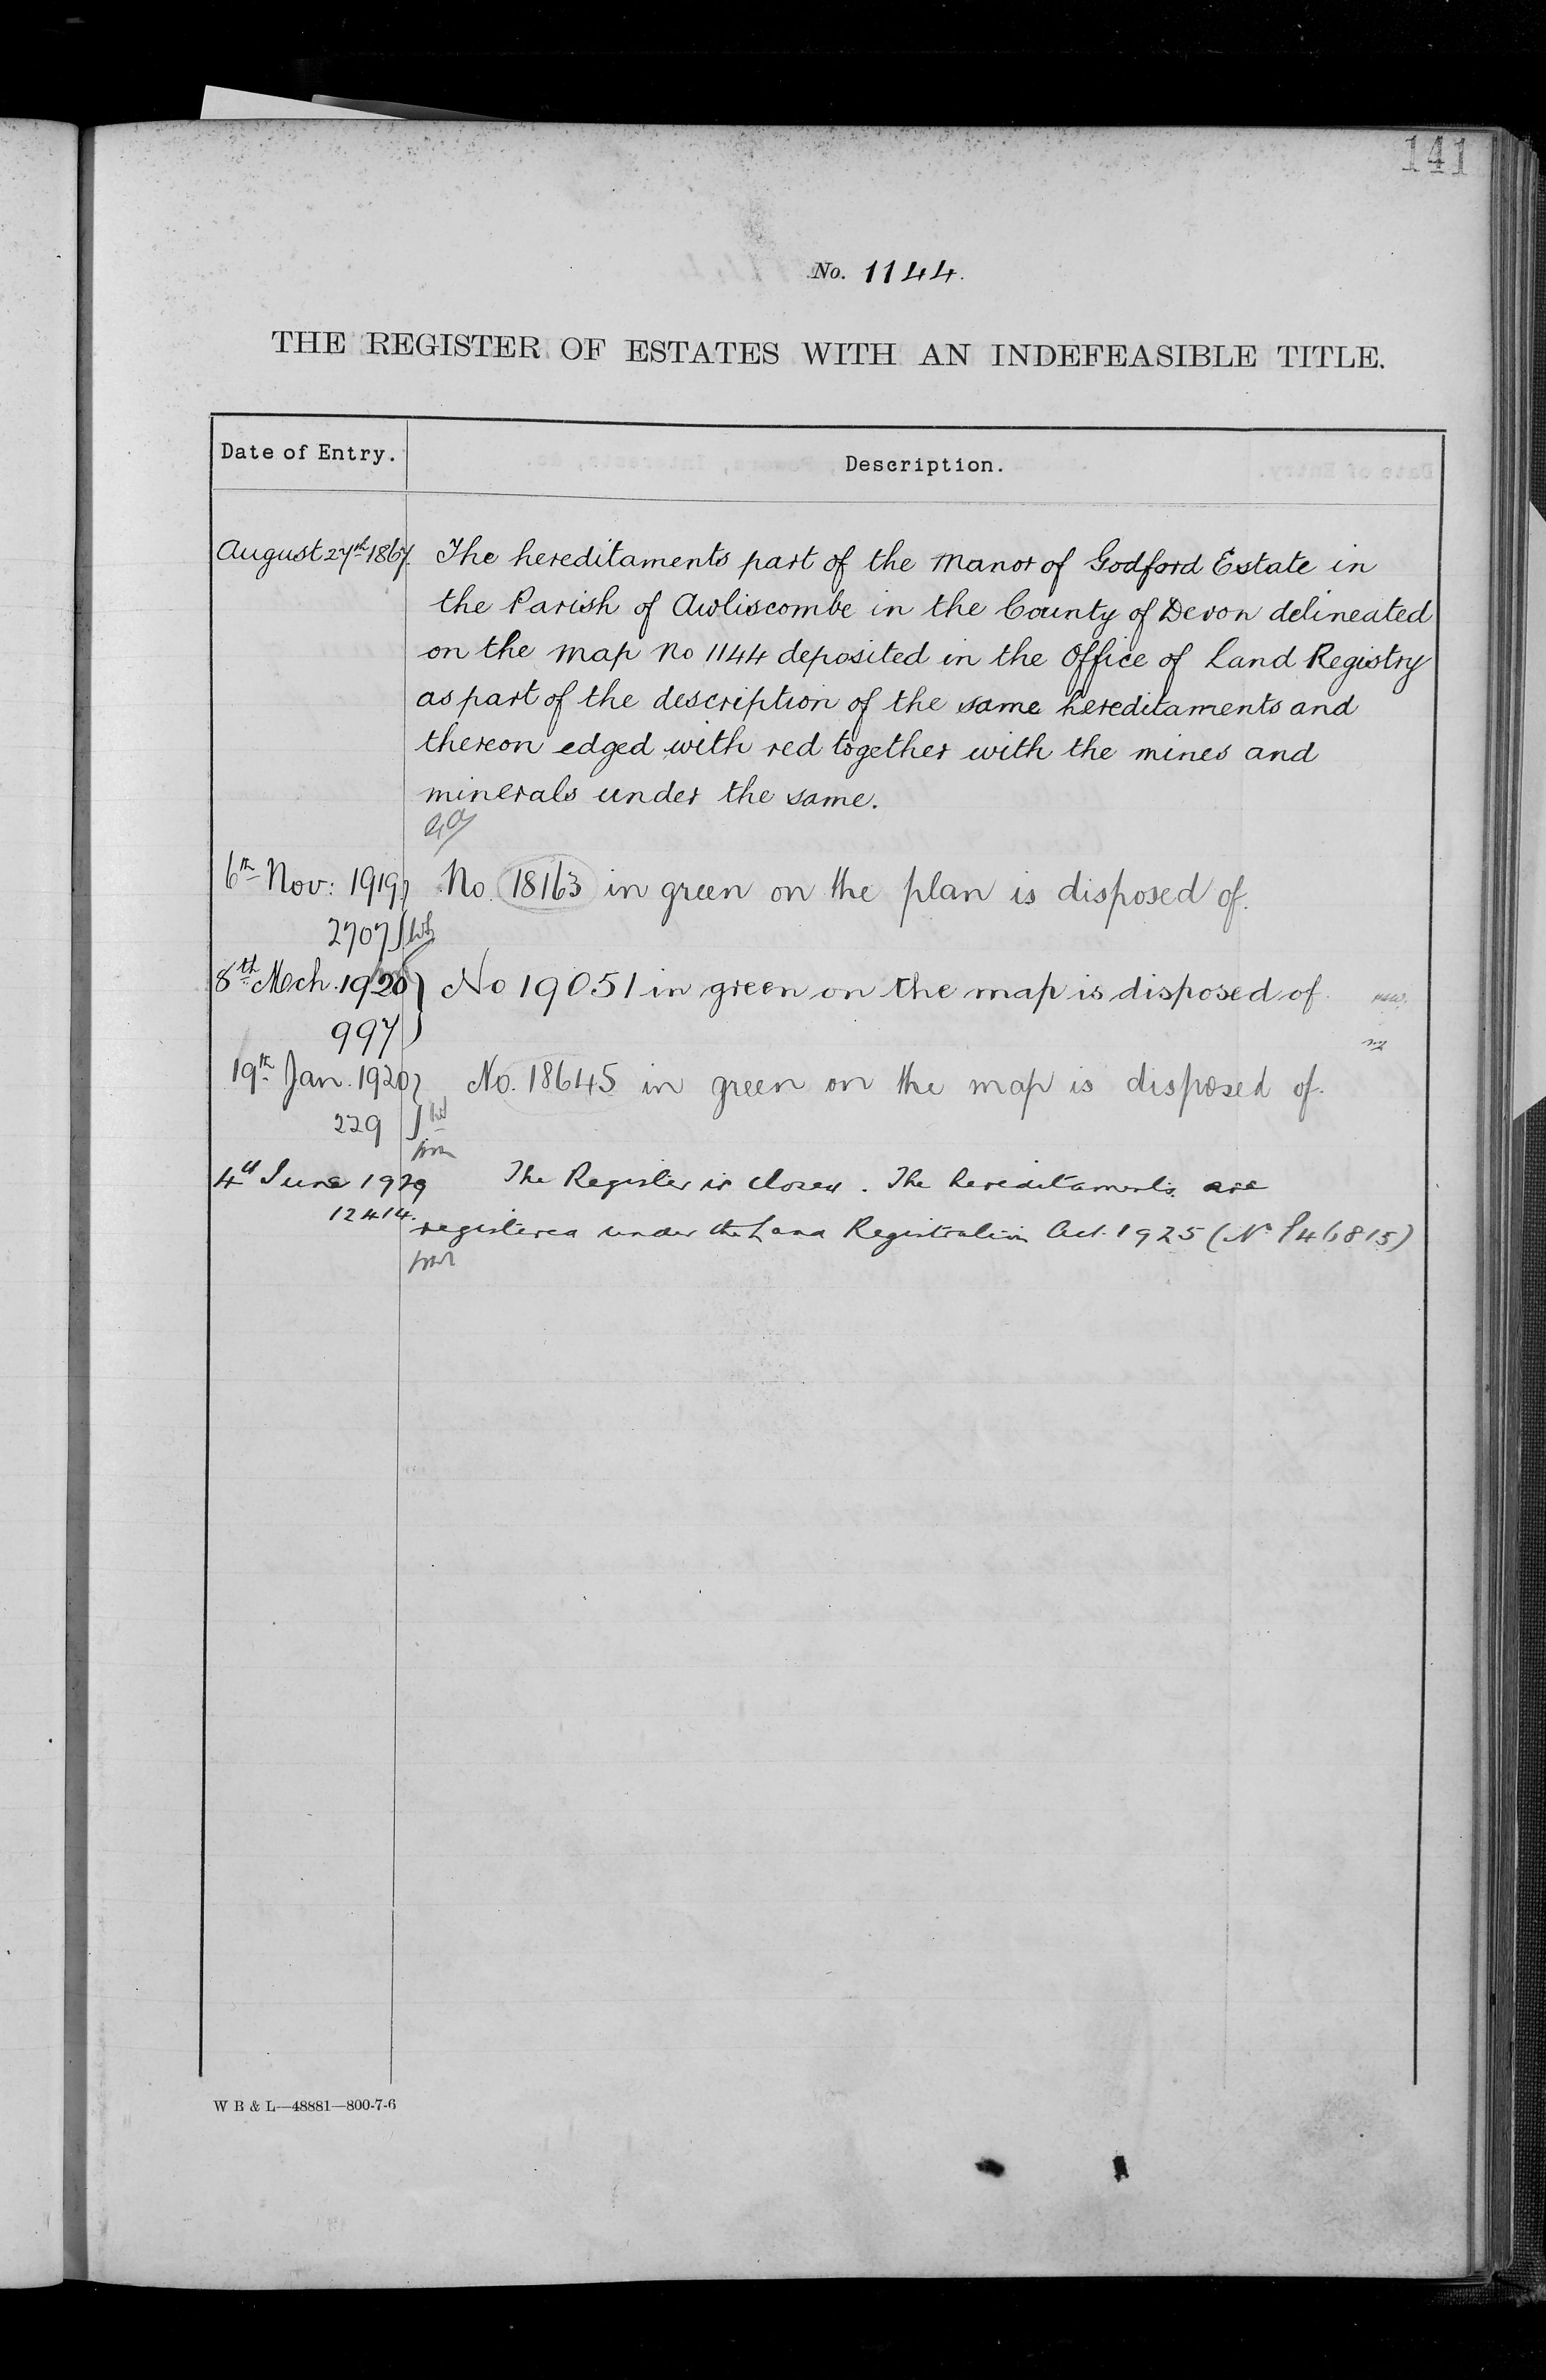 141
No. 1144.
THE REGISTER OF ESTATES WITH AN INDEFEASIBLE TITLE.
Date of Entry.
Description.
August 27th 1867. The hereditaments part of the Manor of Godford Estate in
the Parish of Awliscombe in the County of Devon delineated
on the map No 1144 deposited in the Office of Land Registry
as part of the description of the same hereditaments and
thereon edged with red together with the mines and
minerals under the same.
6th Nov: 1919 No. 18163 in green on the plan is disposed of.
2707
8th Mch. 1920 No 19051 in green on the map is disposed of.
997
19th Jan. 1920 No. 18645 in green on the map is disposed of.
229
4th June 1929 The Register is closed. The hereditaments are
12414. registered under the Land Registration Act. 1925 (No P46815)
W B & L—48881—800-7-6